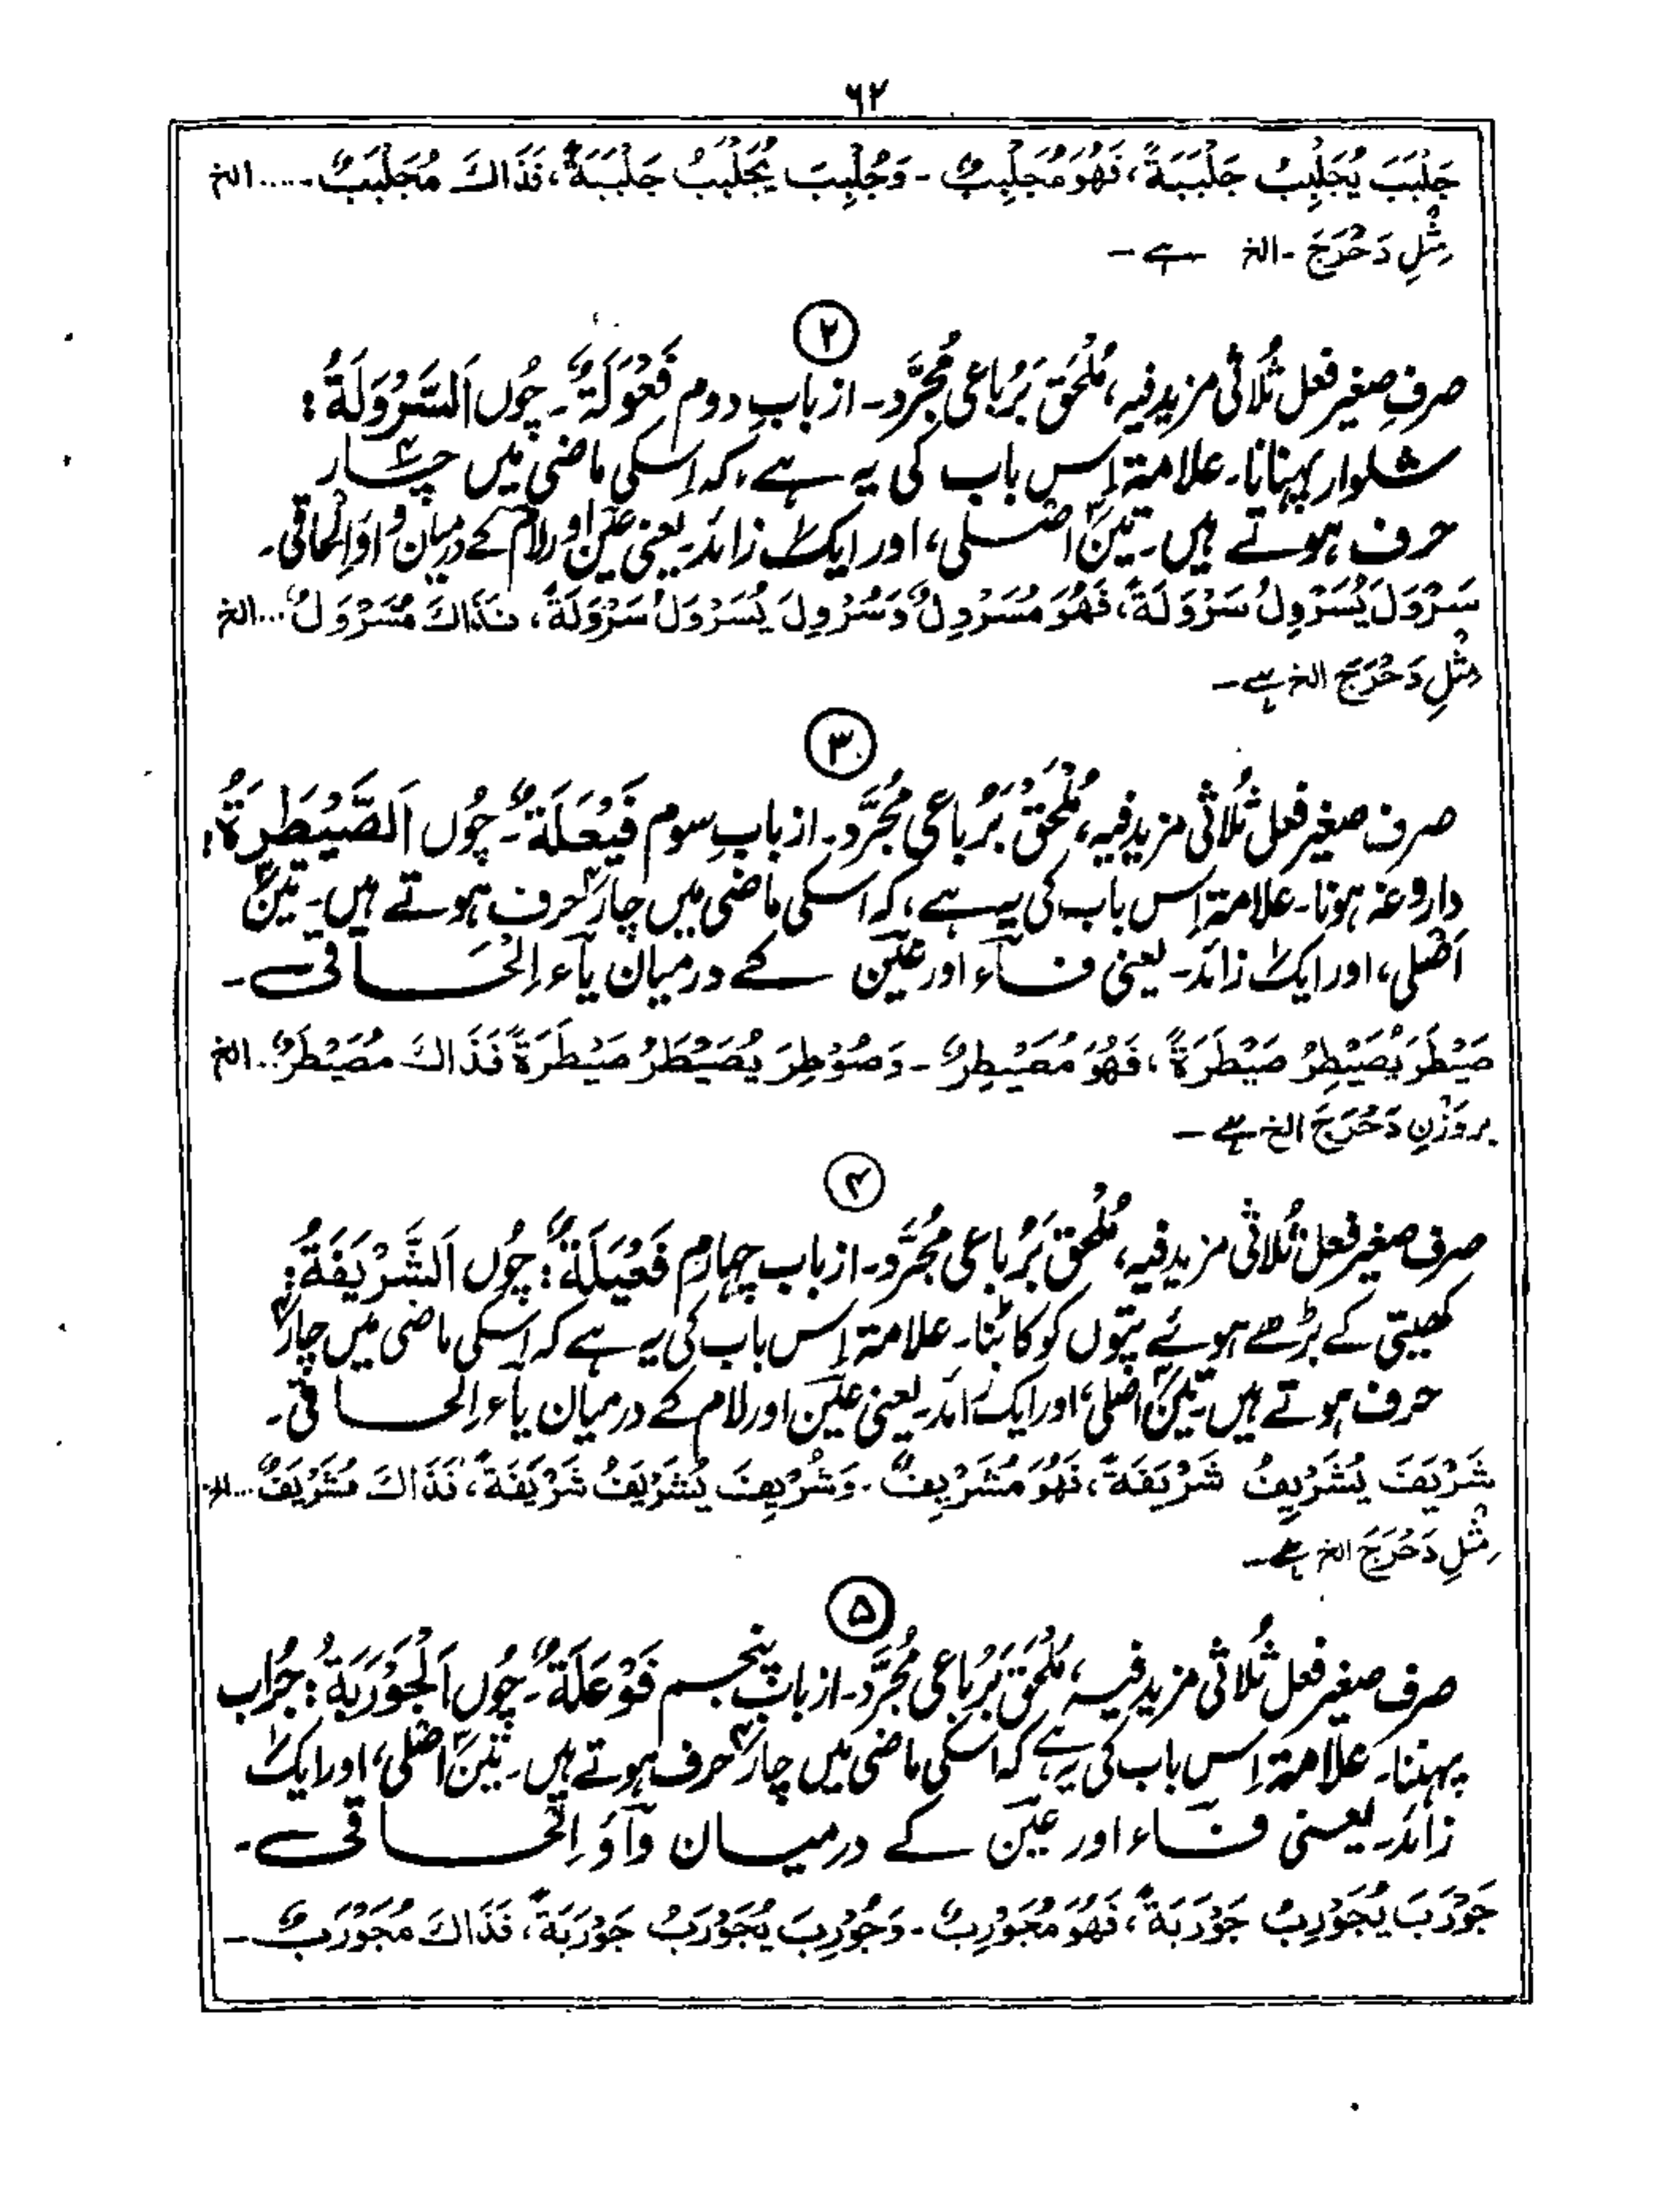 ۶۲
جَلْبَبَ يُجَلْبِبُ جَلْبَبَةً، فَهُوَ مُجَلْبِبٌ - وَجُلْبِبَ يُجَلْبَبُ جَلْبَبَةً، فَذَاكَ مُجَلْبَبٌ ..... الخ
مِثْلِ دَحْرَجَ - الخ ہے -
۲
صرفِ صغیر فعل ثُلاثی مزید فیہ، مُلْحَق بَرُباعی مُجَرَّد - از بابِ دوم فَعْوَلَةٌ - چُوں اَلسَّرْوَلَةُ :
شلوار پہنانا - علامۃ اِس باب کی یہ ہے، کہ اِسکی ماضی میں چار۴
حرف ہوتے ہیں - تین۳ اَصْلی، اور ایک زائد - یعنی عین اور لام کے درمیان واوَ اِلْحاقی -
سَرْوَلَ يُسَرْوِلُ سَرْوَلَةً، فَهُوَ مُسَرْوِلٌ وَسُرْوِلَ يُسَرْوَلُ سَرْوَلَةً، فَذَاكَ مُسَرْوَلٌ ... الخ
مِثْلِ دَحْرَجَ الخ ہے -
۳
صرفِ صغیر فعل ثُلاثی مزید فیہ، مُلْحَق بَرُباعی مُجَرَّد - از بابِ سوم فَيْعَلَةٌ - چُوں اَلصَّيْطَرَةُ :
داروغہ ہونا - علامۃ اِس باب کی یہ ہے، کہ اسکی ماضی میں چار۴ حرف ہوتے ہیں - تین۳
اَصْلی، اور ایک زائد - یعنی فاء اور عین کے درمیان یاء اِلْحَاقی ہے -
صَيْطَرَ يُصَيْطِرُ صَيْطَرَةً، فَهُوَ مُصَيْطِرٌ - وَصُوْطِرَ يُصَيْطَرُ صَيْطَرَةً فَذَاكَ مُصَيْطَرٌ .. الخ
بروَزْنِ دَحْرَجَ الخ ہے -
۴
صرفِ صغیر فعل ثُلاثی مزید فیہ، مُلْحَق بَرُباعی مُجَرَّد - از باب چہارم فَعْيَلَةٌ : چُوں اَلشَّرْيَفَةُ :
کھیتی کے بڑھے ہوئے پتوں کو کاٹنا - علامۃ اِس باب کی یہ ہے کہ اِسکی ماضی میں چار۴
حرف ہوتے ہیں - تین۳ اصْلی، اور ایک زائد - یعنی عین اور لام کے درمیان یاء اِلحاقی -
شَرْيَفَ يُشَرْيِفُ شَرْيَفَةً، فَهُوَ مُشَرْيِفٌ - وَشُرْيِفَ يُشَرْيَفُ شَرْيَفَةً، فَذَاكَ مُشَرْيَفٌ ... الخ
مِثْلِ دَحْرَجَ الخ ہے -
۵
صرف صغیر فعل ثُلاثی مزید فیہ، مُلْحَق بَرُباعی مُجَرَّد - از باب پنجم فَوْعَلَةٌ - چُوں اَلْجَوْرَبَةُ : جُراب
پہننا - علامۃ اِس باب کی یہ ہے کہ اسکی ماضی میں چار۴ حرف ہوتے ہیں - تین۳ اصْلی، اور ایک
زائد - یعنی فاء اور عین کے درمیان واوَ اِلْحاقی ہے -
جَوْرَبَ يُجَوْرِبُ جَوْرَبَةً، فَهُوَ مُجَوْرِبٌ - وَجُوْرِبَ يُجَوْرَبُ جَوْرَبَةً، فَذَاكَ مُجَوْرَبٌ -